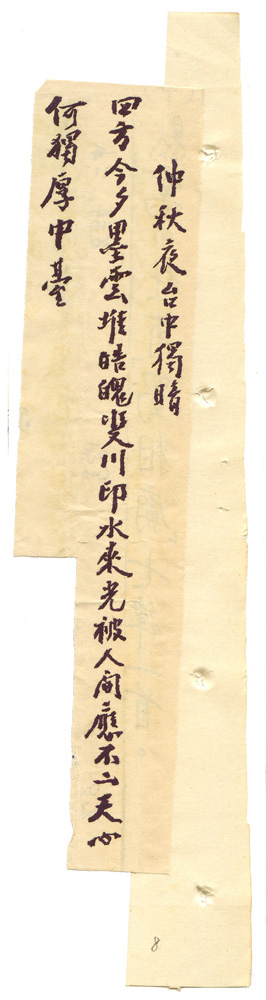 仲秋夜台中獨晴
四方今夕墨雲堆皓魄雙川印水來光被人間應不二天心
何獨厚中臺
8